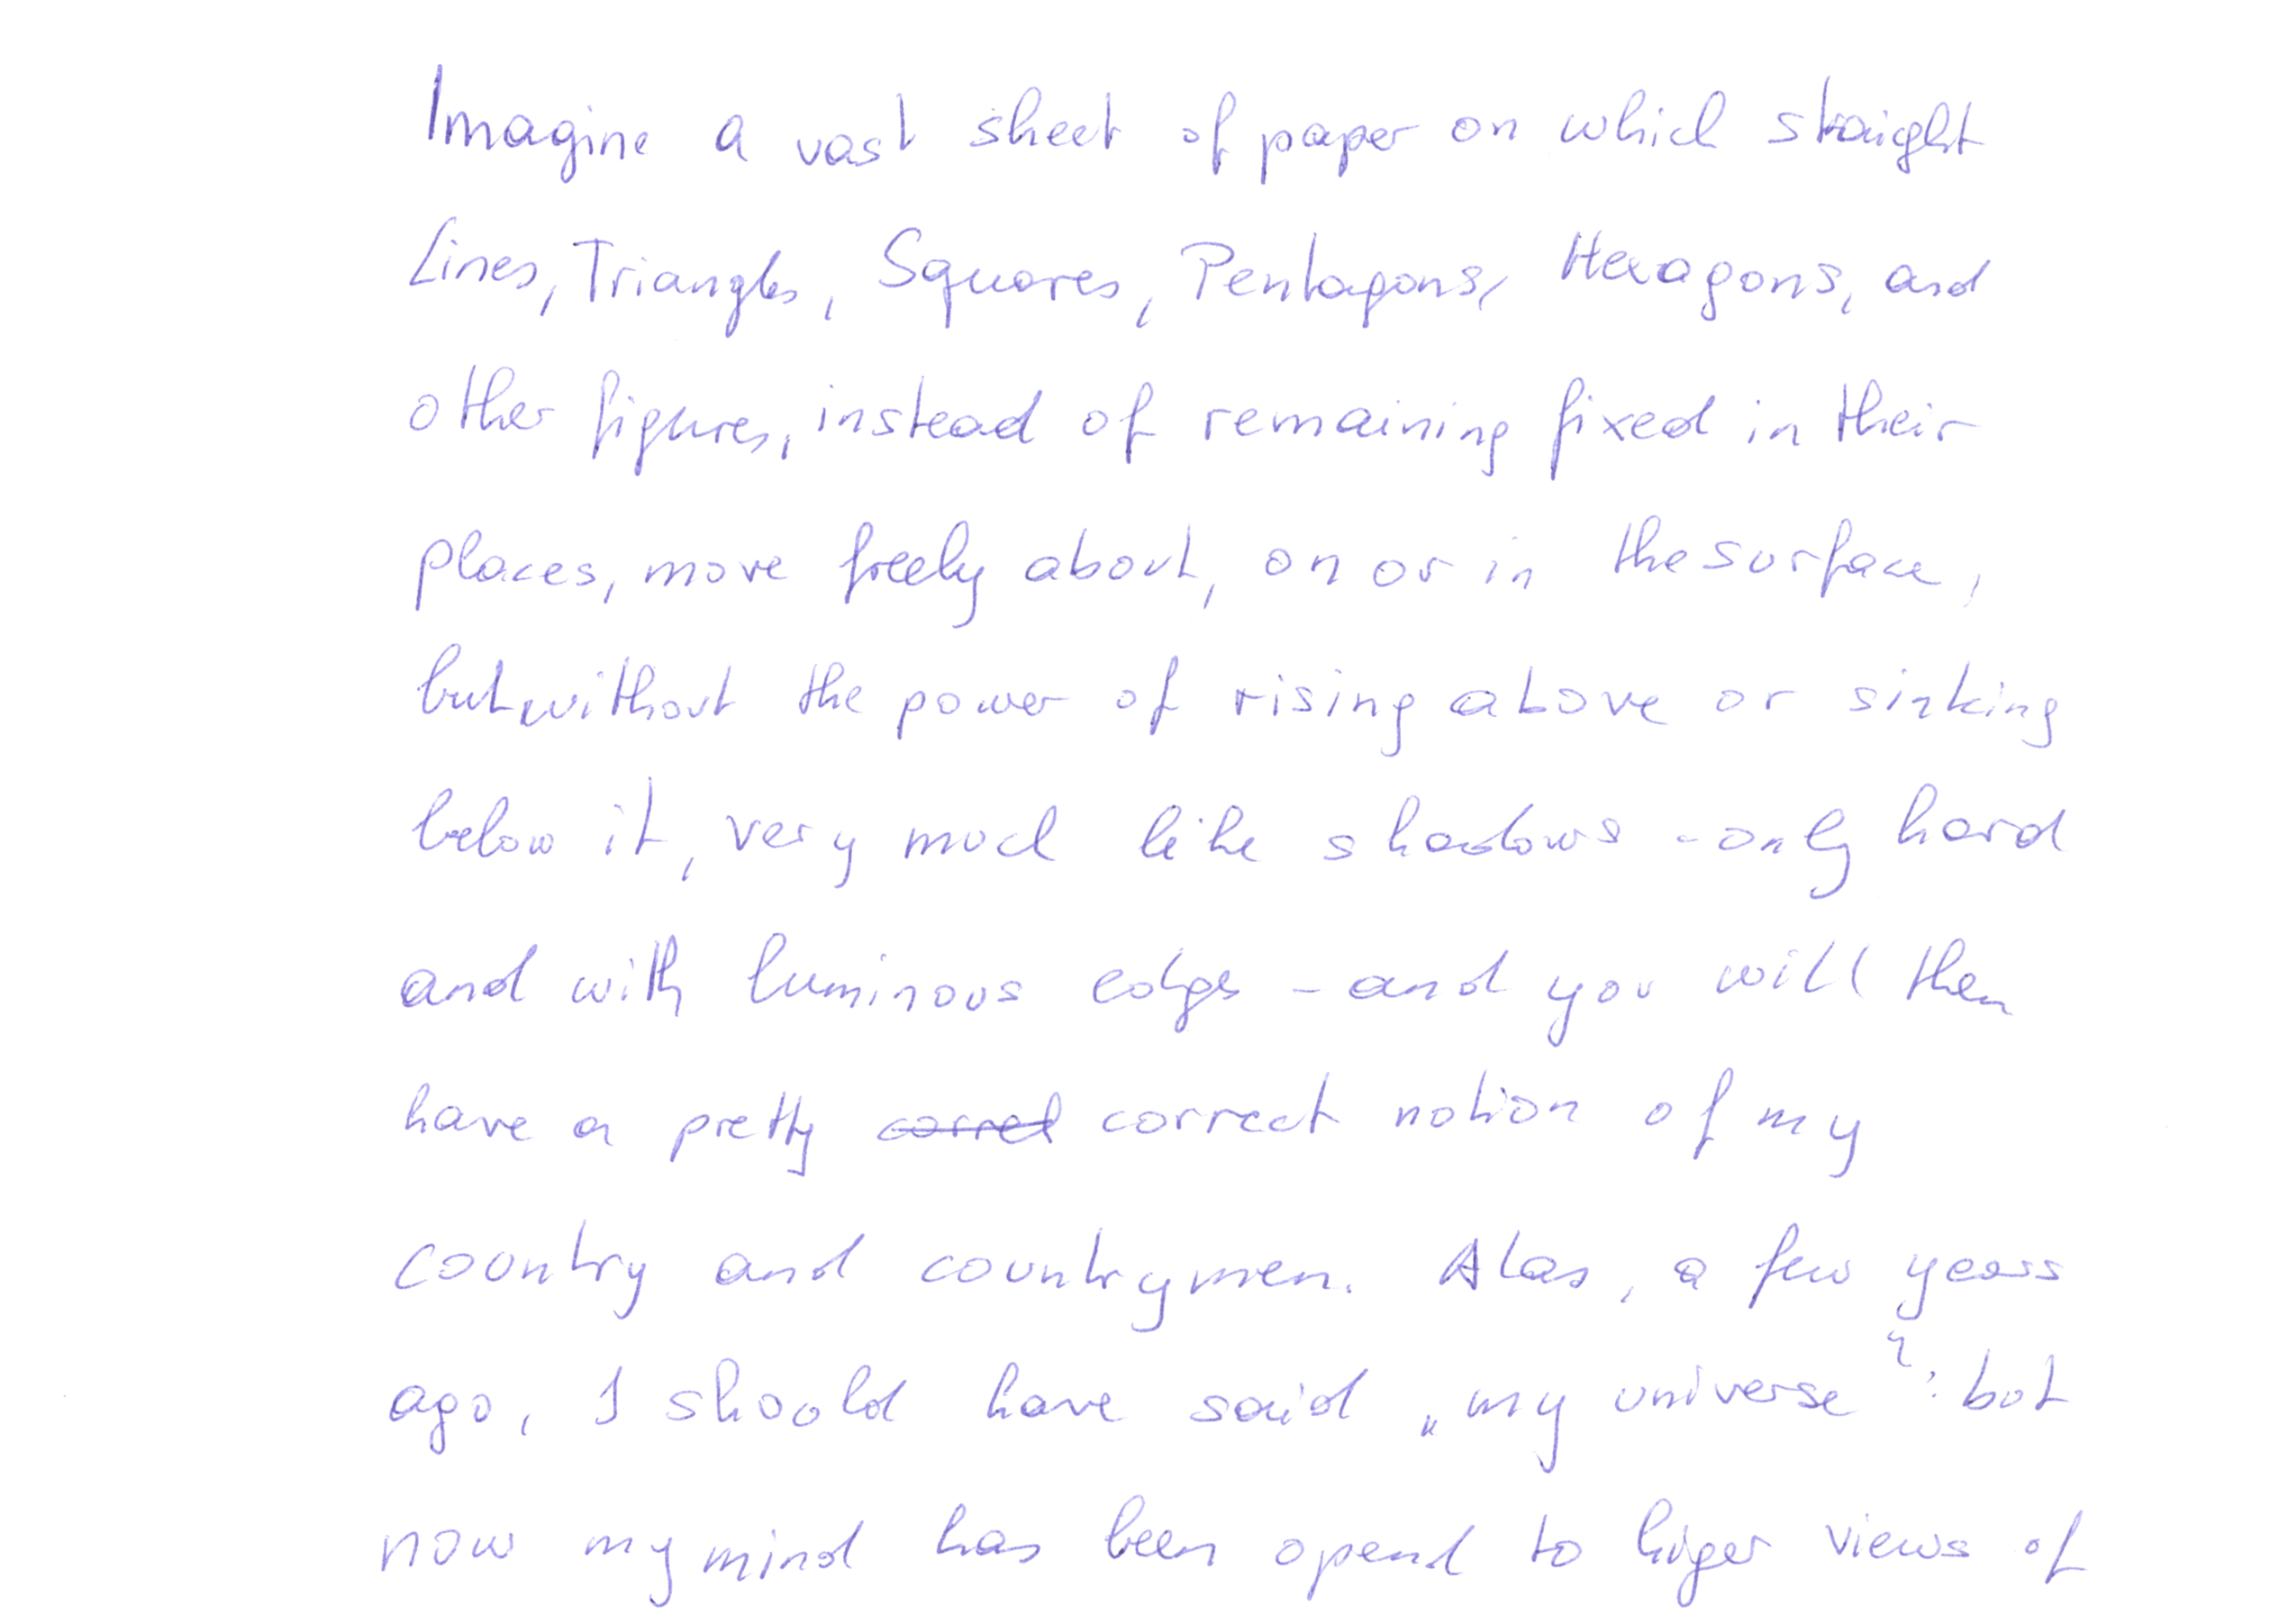 Imagine a vast sheet of paper on which straight
Lines, Triangles, Squares, Pentagons, Hexagons, and
other figures, instead of remaining fixed in their
places, move freely about, on or in the surface,
but without the power of rising above or sinking
below it, very much like shadows - only hard
and with luminous edges - and you will then
have a pretty ~~correct~~ correct notion of my
country and countrymen. Alas, a few years
ago, I should have said „my universe": but
now my mind has been opend to higer views of